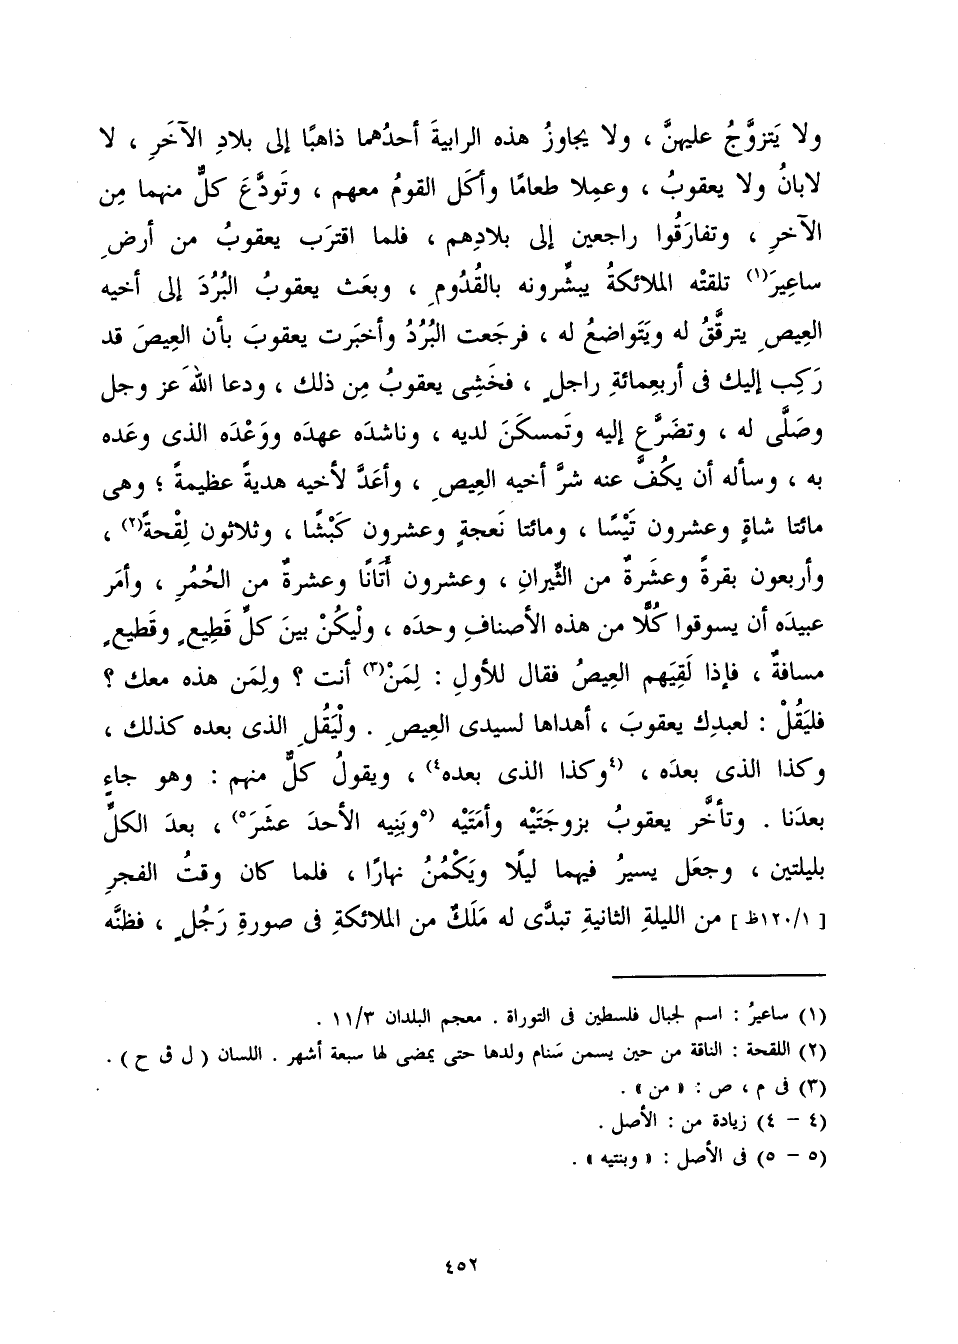 ولا يَتزوَّجُ عليهنَّ ، ولا يجاوزُ هذه الرابيةَ أحدُهما ذاهبًا إلى بلادِ الآخَرِ ، لا
لابانُ ولا يعقوبُ ، وعمِلا طعامًا وأكَل القومُ معهم ، وتَودَّعَ كلٌّ منهما مِن
الآخرِ ، وتفارَقُوا راجعين إلى بلادِهم ، فلما اقترَب يعقوبُ من أرضِ
ساعِيرَ(١) تلقتْه الملائكةُ يبشِّرونه بالقُدُومِ ، وبعَث يعقوبُ البُرُدَ إلى أخيه
العِيصِ يترقَّقُ له ويَتَواضعُ له ، فرجَعت البُرُدُ وأخبَرت يعقوبَ بأن العِيصَ قد
رَكِب إليك فى أربعِمائةِ راجلٍ ، فخَشِى يعقوبُ مِن ذلك ، ودعا اللهَ عز وجل
وصَلَّى له ، وتضَرَّع إليه وتَمسكَنَ لديه ، وناشدَه عهدَه ووَعْدَه الذى وعَده
به ، وسأله أن يكُفَّ عنه شرَّ أخيه العِيصِ ، وأعَدَّ لأخيه هديةً عظيمةً ؛ وهى
مائتا شاةٍ وعشرون تَيْسًا ، ومائتا نَعجةٍ وعشرون كَبْشًا ، وثلاثون لِقْحةً(٢) ،
وأربعون بقرةً وعشَرةٌ من الثِّيرانِ ، وعشرون أَتَانًا وعشرةٌ من الحُمُرِ ، وأمَر
عبيدَه أن يسوقوا كُلًّا من هذه الأصنافِ وحدَه ، ولْيكُنْ بينَ كلِّ قَطِيعٍ وقَطيعٍ
مسافةٌ ، فإذا لَقِيَهم العِيصُ فقال للأولِ : لِمَنْ(٣) أنت ؟ ولِمَن هذه معك ؟
فليَقُلْ : لعبدِك يعقوبَ ، أهداها لسيدى العِيصِ . ولْيَقُلِ الذى بعده كذلك ،
وكذا الذى بعدَه ، (٤وكذا الذى بعده٤) ، ويقولُ كلٌّ منهم : وهو جاءٍ
بعدَنا . وتأخَّر يعقوبُ بزوجَتَيْه وأمَتَيْه (٥وبَنِيه الأحدَ عشَرَ٥) ، بعدَ الكلِّ
بليلتين ، وجعَل يسيرُ فيهما ليلًا ويَكْمُنُ نهارًا ، فلما كان وقتُ الفجرِ
[ ١/١٢٠ظ ] من الليلةِ الثانيةِ تبدَّى له مَلَكٌ من الملائكةِ فى صورةِ رَجُلٍ ، فظنَّه
(١) ساعيرُ : اسم لجبال فلسطين فى التوراة . معجم البلدان ١١/٣ .
(٢) اللقحة : الناقة من حين يسمن سَنام ولدها حتى يمضى لها سبعة أشهر . اللسان ( ل ق ح ) .
(٣) فى م ، ص : « من » .
(٤ - ٤) زيادة من : الأصل .
(٥ - ٥) فى الأصل : « وبنتيه » .
٤٥٢